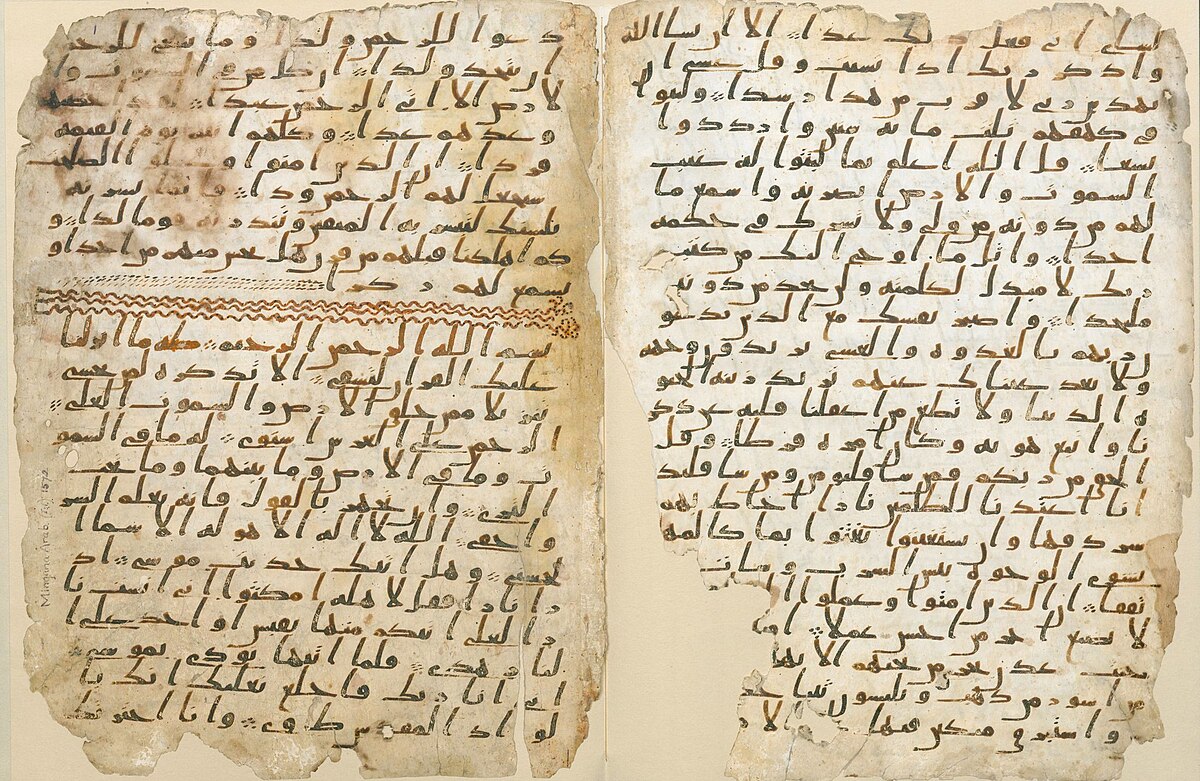 لشاى انى فعل ذلك غدا الا ان يسا الله
واذكر ربك اذا نسيت وقل عسى ان
يهدين ربى لاقرب من هذا رشدا ولبثوا
فى كهفهم ثلث مايه سنين وازددوا
تسعا قل الله اعلم بما لبثوا له غيب
السموت والارض ابصر به واسمع ما
لهم من دونه من ولى ولا يشرك فى حكمه
احدا واتل ما اوحى اليك من كتب
ربك لا مبدل لكلمته ولن تجد من دونه
ملتحدا واصبر نفسك مع الذين يدعو
ن ربهم بالغدوه والعشى يريدون وجهه
ولا تعد عيناك عنهم تريد زينه الحيو
ه الدنيا ولا تطع من اغفلنا قلبه عن ذكر
نا واتبع هويه وكان امره فرطا وقل
الحق من ربكم فمن شا فليومن ومن شا فليكفر
انا اعتدنا للظلمين نارا احاط بهم
سردقها وان يستغيثوا يغثوا بما كالمهل
يشوى الوجوه بيس الشرب وسات
تفقا ان الذين امنوا وعملوا ا
لا نضيع اجر من احسن عملا او
جنت عدن تجرى من تحتهم الانها
من اسور من ذهب ويلبسون ثيابا خ
واستبرق متكين فيها الا
دعوا للرحمن ولدا وما ينبغى للرحمن
ان يتخذ ولدا ان كل من فى السموت وا
لارض الا اتى الرحمن عبدا لقد احصيهم
وعدهم عدا وكلهم اتيه يوم القيمه
فردا ان الذين امنوا وعملوا الصلحت
سيجعل لهم الرحمن ودا فانما يسرنه
بلسنك لتبشر به المتقين وتنذر به قوما لدا و
كم اهلكنا قبلهم من قرن هل تحس منهم من احد او
تسمع لهم ركزا
بسم الله الرحمن الرحيم طه ما انزلنا
عليك القران لتشقى الا تذكره لمن يخشى
تنزيلا ممن خلق الارض والسموت العلى
الرحمن على العرش استوى له ما فى السمو
ت وما فى الارض وما بينهما وما تحت
الثرى وان تجهر بالقول فانه يعلم السر
واخفى الله لا اله الا هو له الاسما ا
لحسنى وهل اتيك حديث موسى اذ
را نارا فقل لاهله امكثوا انى انست نا
را لعلى اتيكم منها بقبس او اجد على ا
لنار هدى فلما اتيها نودى يموسى
انى انا ربك فاخلع نعليك انك با
لواد المقدس طوى وانا اخترتك
Mingana Arab. Isl. 1572